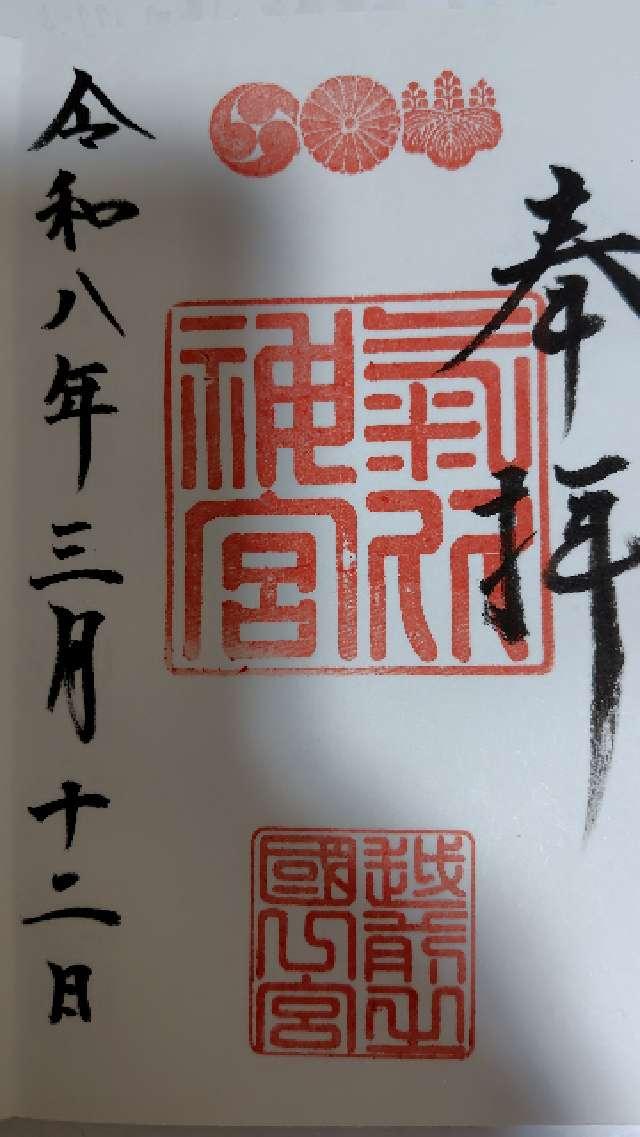 奉拝
氣比
神宮
越前之
國一宮
令和八年三月十二日